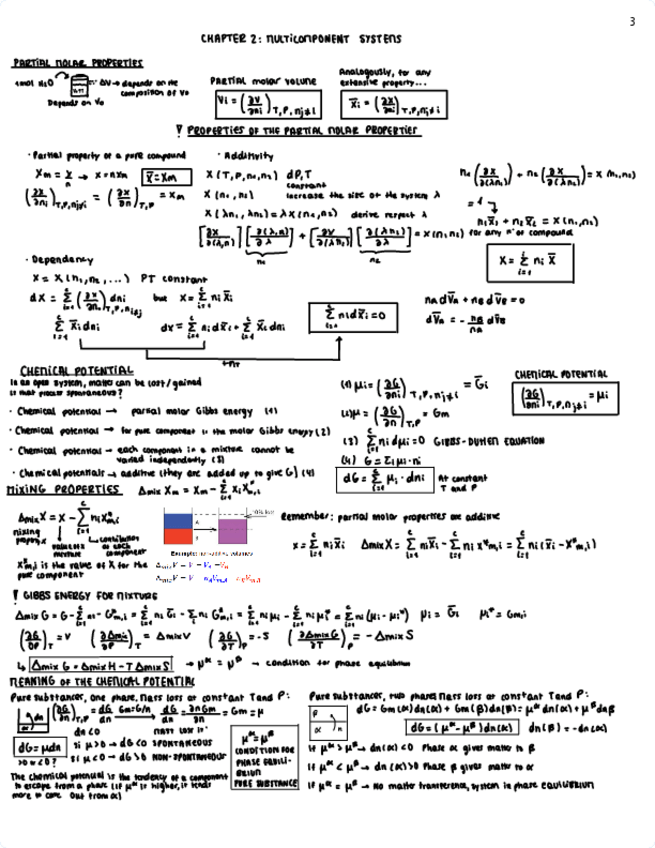 3
CHAPTER 2: MULTICOMPONENT SYSTEMS
PARTIAL MOLAR PROPERTIES
1mol H2O
ΔV → depends on the composition of V0
Depends on V0
PARTIAL molar volume
V̄i = (∂V/∂ni)T,P,nj≠i
Analogously, for any extensive property...
X̄i = (∂X/∂ni)T,P,nj≠i
! PROPERTIES OF THE PARTIAL MOLAR PROPERTIES
· Partial property of a pure compound
Xm = X/n → X = nXm   X̄ = Xm
(∂X/∂ni)T,P,nj≠i = (∂X/∂n)T,P = Xm
· Additivity
X (T, P, n1, n2)   dP,T constant
X (n1, n2)   increase the size of the system λ
X (λn1, λn2) = λX (n1, n2)   derive respect λ
n1 (∂X/∂(λn1)) + n2 (∂X/∂(λn2)) = X (n1, n2)
= 1
n1X̄1 + n2X̄2 = X (n1, n2)
for any nº of compound
X = Σ ni X̄i
· Dependency
X = X (n1, n2, ...)   PT constant
dX = Σ (∂X/∂ni)T,P,nj dni   but   X = Σ ni X̄i
Σ X̄i dni   dX = Σ ni dX̄i + Σ X̄i dni
Σ ni dX̄i = 0
nA dV̄A + nB dV̄B = 0
dV̄A = - nB/nA dV̄B
CHEMICAL POTENTIAL
In an open system, matter can be lost / gained
is that process spontaneous?
· Chemical potential → partial molar Gibbs energy (1)
· Chemical potential → for pure component is the molar Gibbs energy (2)
· Chemical potential → each component in a mixture cannot be varied independently (3)
· Chemical potentials → additive (they are added up to give G) (4)
(1) μi = (∂G/∂ni)T,P,nj≠i = Ḡi
(2) μ = (∂G/∂n)T,P = Gm
(3) Σ ni dμi = 0   GIBBS-DUHEM EQUATION
(4) G = Σi μi · ni
dG = Σ μi · dni   At constant T and P
CHEMICAL POTENTIAL
(∂G/∂ni)T,P,nj≠i = μi
MIXING PROPERTIES   Δmix Xm = Xm - Σ xi X*m,i
Δmix X = X - Σ ni X*m,i
mixing property
value in mixture
contribution of each component
X*m,i is the value of X for the pure component
Example: non-additive volumes
Remember: partial molar properties are additive
X = Σ ni X̄i   Δmix X = Σ ni X̄i - Σ ni X*m,i = Σ ni (X̄i - X*m,i)
! GIBBS ENERGY FOR MIXTURE
Δmix G = G - Σ ni · G*m,i = Σ ni Ḡi - Σ ni G*m,i = Σ ni μi - Σ ni μi* = Σ ni (μi - μi*)   μi = Ḡi   μi* = Gm,i
(∂G/∂P)T = V   (∂Δmix G/∂P)T = Δmix V   (∂G/∂T)P = -S   (∂Δmix G/∂T)P = -Δmix S
Δmix G = Δmix H - TΔmix S   → μα = μβ → condition for phase equilibrium
MEANING OF THE CHEMICAL POTENTIAL
Pure substances, one phase, mass loss at constant T and P:
(∂G/∂n)T,P = dG/dn   Gm = G/n   dG/dn = dnGm/dn = Gm = μ
dn < 0   matt lost it
dG = μdn   si μ > 0 → dG < 0 SPONTANEOUS
si μ < 0 → dG > 0 NON-SPONTANEOUS
The chemical potential is the tendency of a component
to escape from a phase (if μα is higher, it tends
more to come out from α)
μα = μβ
CONDITION FOR
PHASE EQUILIBRIUM
PURE SUBSTANCE
Pure substances, two phases mass loss at constant T and P:
dG = Gm (α) dn(α) + Gm (β) dn(β) = μα dn(α) + μβ dnβ
dG = (μα - μβ) dn(α)   dn(β) = -dn(α)
If μα > μβ → dn(α) < 0 Phase α gives matter to β
If μα < μβ → dn(α) > 0 Phase β gives matter to α
If μα = μβ → No matter transference, system in phase equilibrium